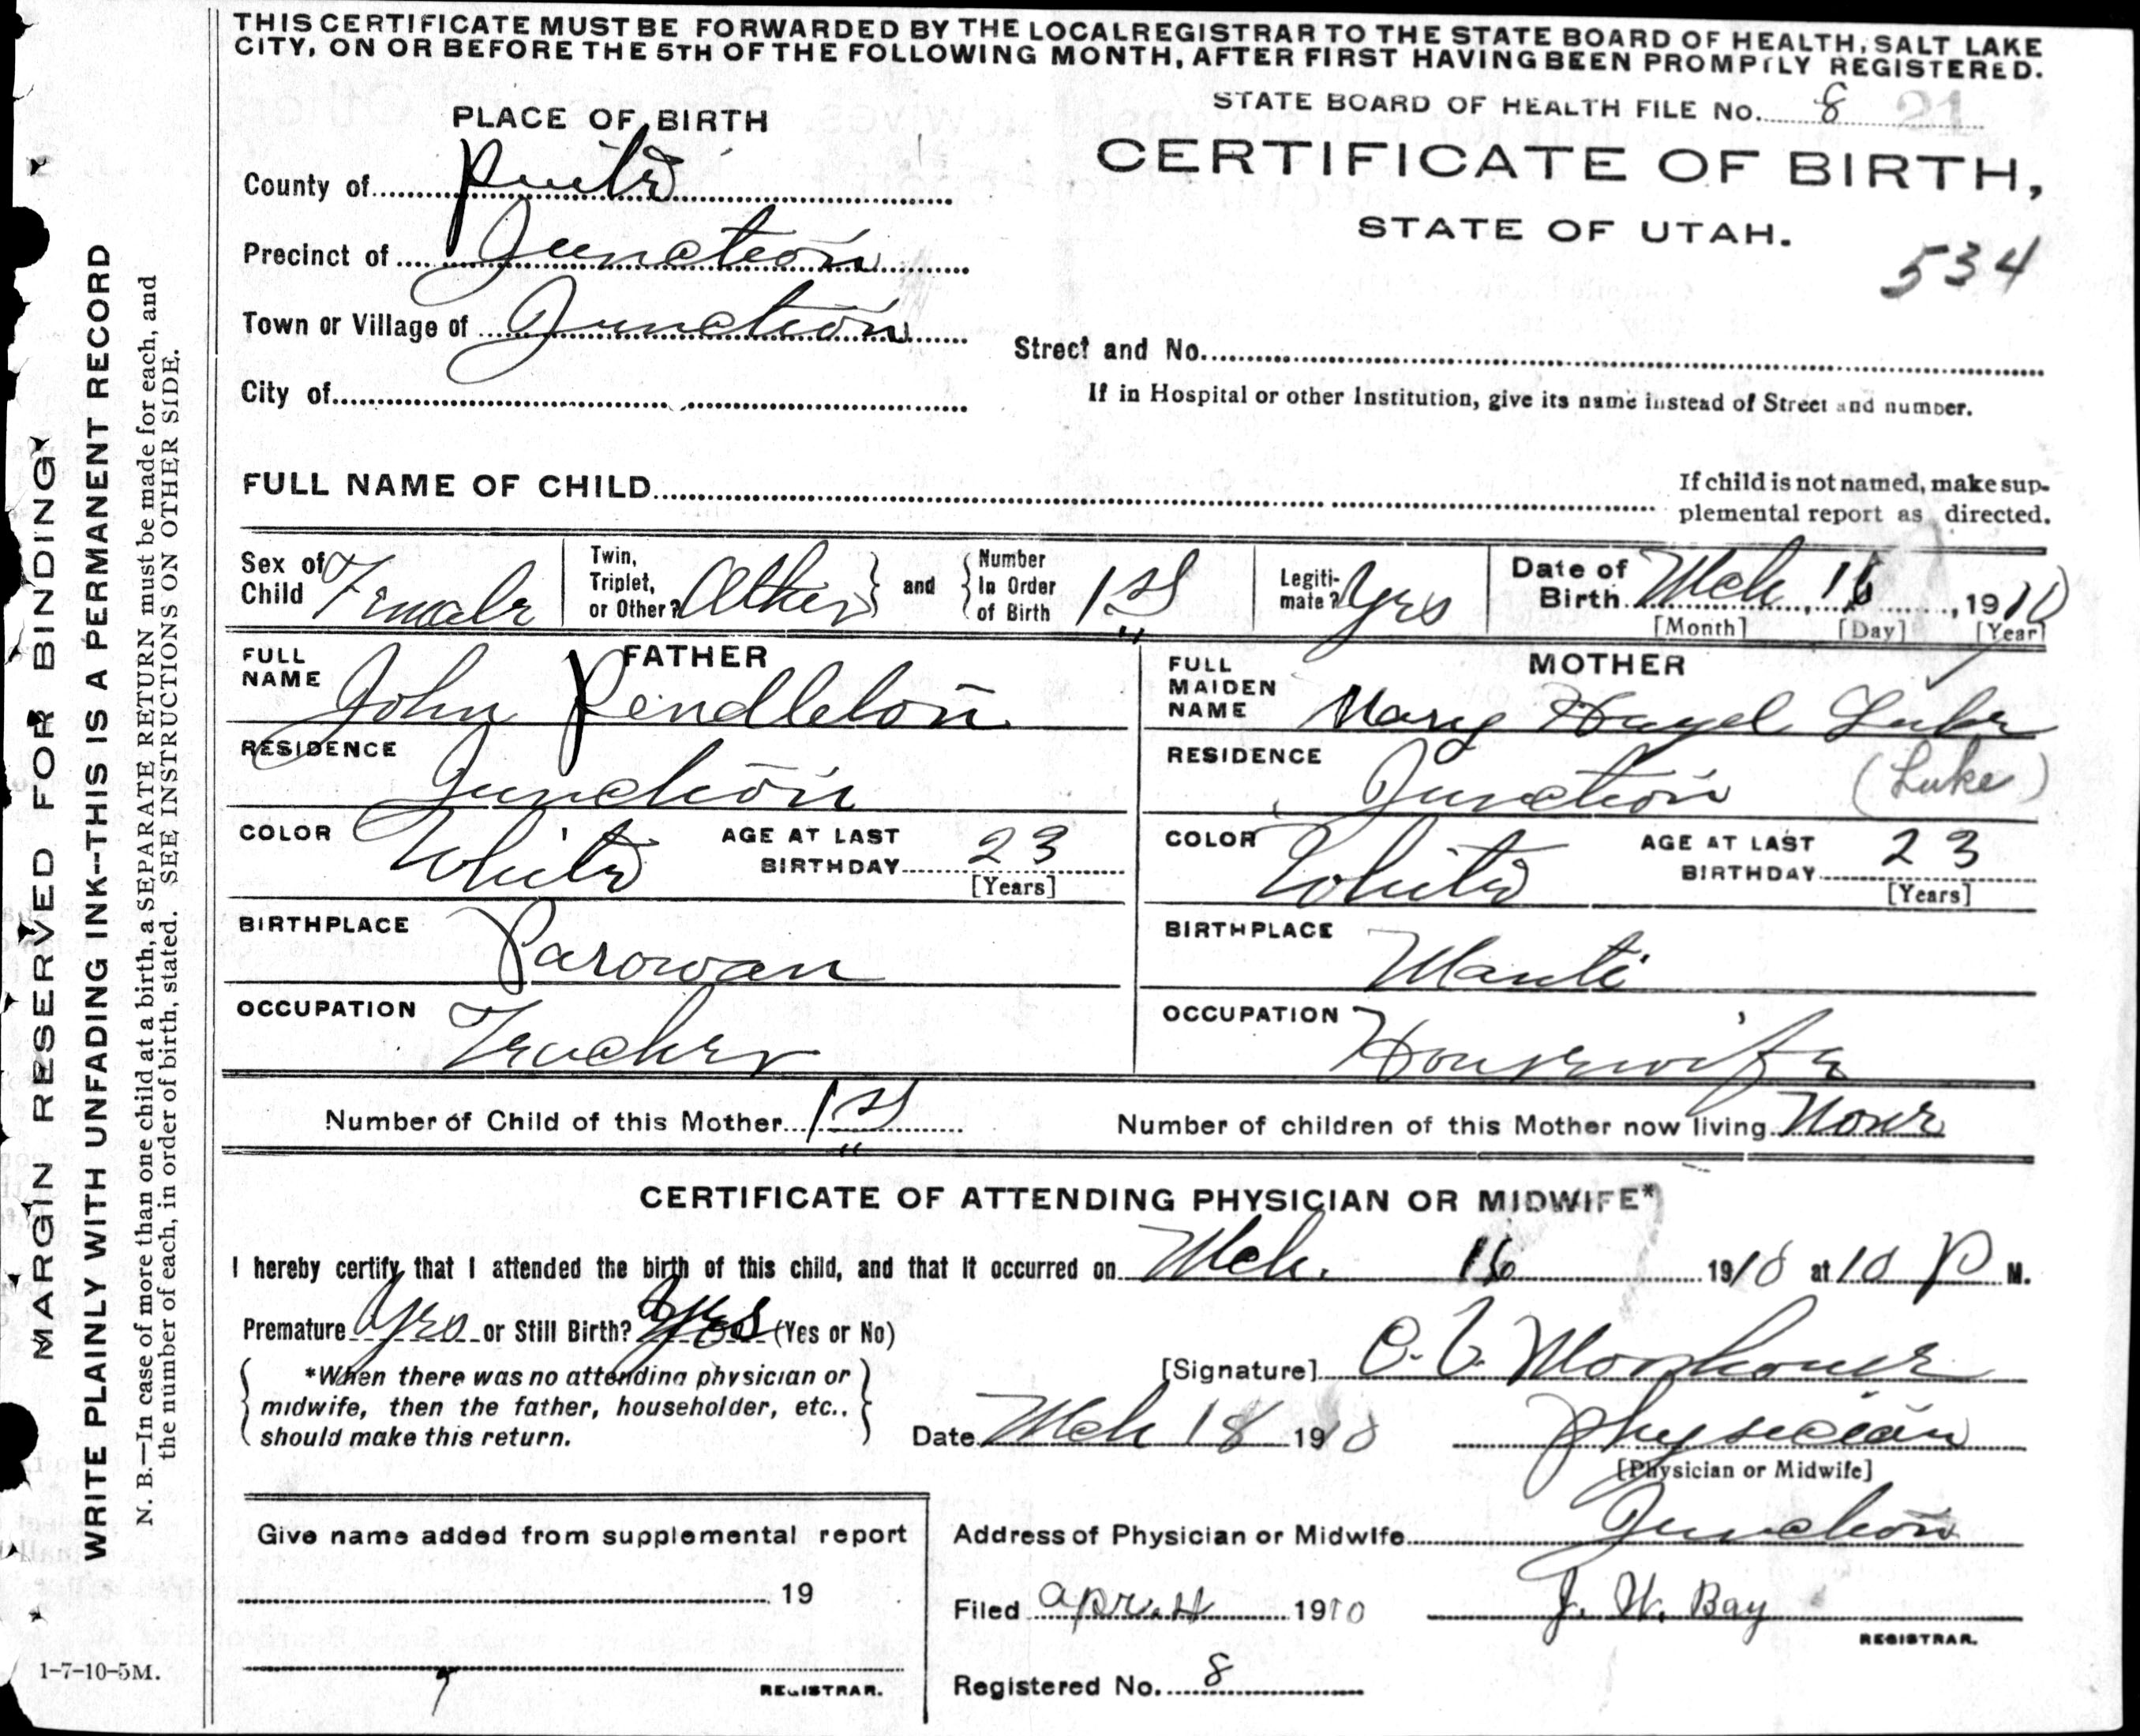 THIS CERTIFICATE MUST BE FORWARDED BY THE LOCAL REGISTRAR TO THE STATE BOARD OF HEALTH, SALT LAKE
CITY, ON OR BEFORE THE 5TH OF THE FOLLOWING MONTH, AFTER FIRST HAVING BEEN PROMPTLY REGISTERED.
STATE BOARD OF HEALTH FILE No. 8 21
PLACE OF BIRTH
CERTIFICATE OF BIRTH,
STATE OF UTAH.
534
County of Piute
Precinct of Junction
Town or Village of Junction
Street and No.
City of
If in Hospital or other Institution, give its name instead of Street and number.
FULL NAME OF CHILD
If child is not named, make sup-
plemental report as directed.
Sex of Child Female
Twin, Triplet, or Other? Other
and Number In Order of Birth 1st
Legiti-mate? Yes
Date of Birth Mch 16, 1910
[Month] [Day] [Year]
FATHER
FULL NAME John Pendleton
RESIDENCE Junction
COLOR White AGE AT LAST BIRTHDAY 23
[Years]
BIRTHPLACE Parowan
OCCUPATION Teacher
MOTHER
FULL MAIDEN NAME Mary Hazel Luke
RESIDENCE Junction (Luke)
COLOR White AGE AT LAST BIRTHDAY 23
[Years]
BIRTHPLACE Manti
OCCUPATION Housewife
Number of Child of this Mother 1st Number of children of this Mother now living None
CERTIFICATE OF ATTENDING PHYSICIAN OR MIDWIFE*
I hereby certify that I attended the birth of this child, and that it occurred on Mch. 16 1910 at 10 P M.
Premature Yes or Still Birth? Yes (Yes or No)
*When there was no attending physician or
midwife, then the father, householder, etc.,
should make this return.
[Signature]
Date Mch 18 1910 Physician
[Physician or Midwife]
Give name added from supplemental report
19
REGISTRAR.
Address of Physician or Midwife Junction
Filed Apr. 4 1910 J. W. Bay
REGISTRAR.
Registered No. 8
MARGIN RESERVED FOR BINDING
WRITE PLAINLY WITH UNFADING INK--THIS IS A PERMANENT RECORD
N. B.—In case of more than one child at a birth, a SEPARATE RETURN must be made for each, and
the number of each, in order of birth, stated. SEE INSTRUCTIONS ON OTHER SIDE.
1-7-10-5M.